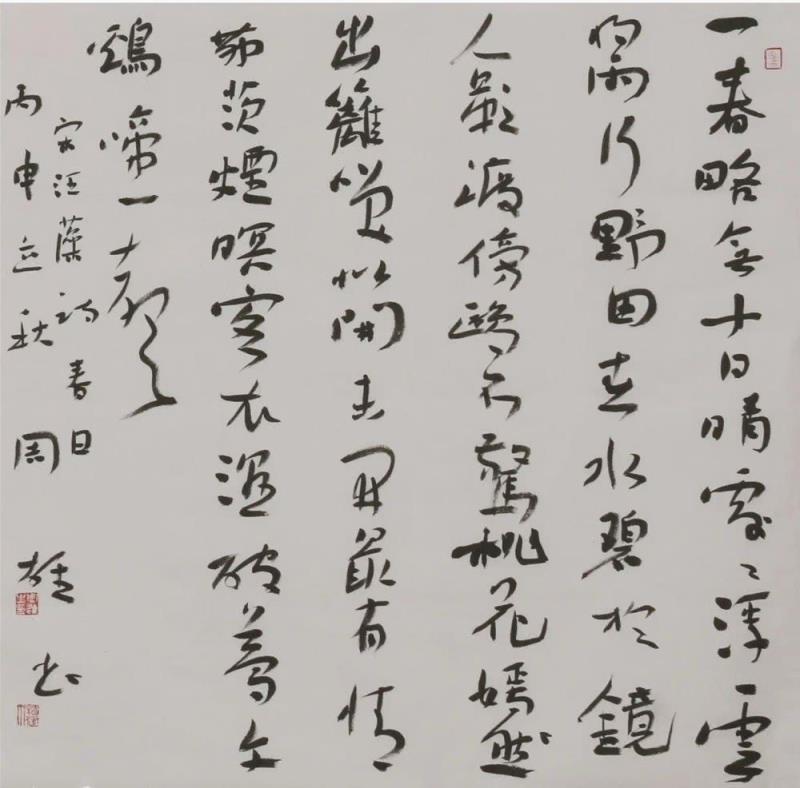 一春略無十日晴處々浮雲
將雨行野田春水碧於鏡
人影渡傍鷗不驚桃花嫣然
出籬笑似開未開最有情
茅茨煙暝客衣溼破夢午
鷄啼一聲
宋汪藻詩春日
丙申立秋周雄书